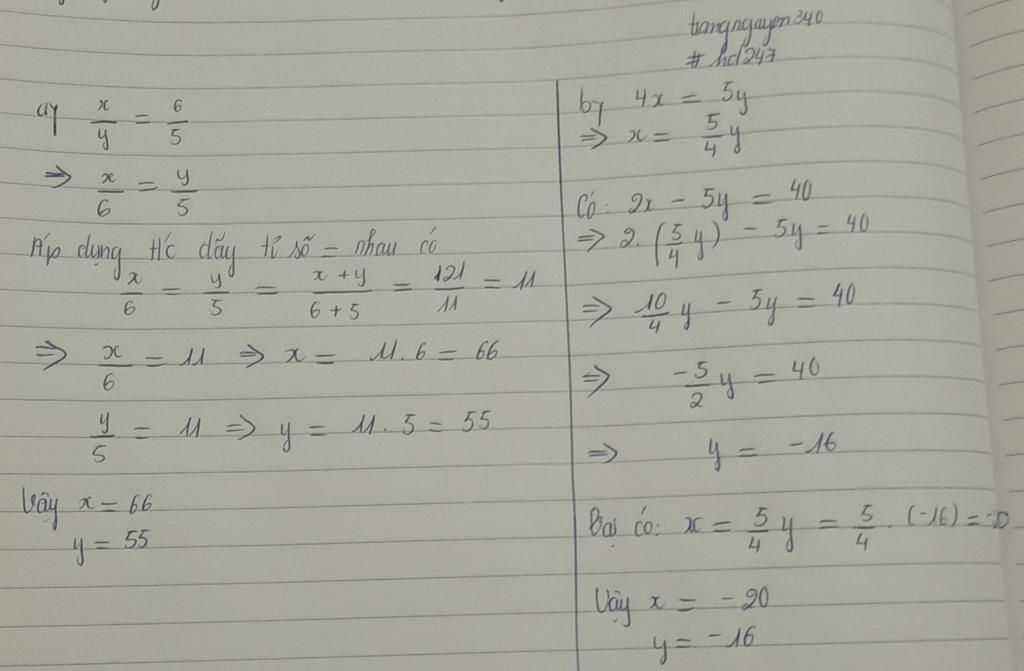 trangnguyen340
#hd247
a, x/y = 6/5
=> x/6 = y/5
Áp dụng t/c dãy tỉ số = nhau có
x/6 = y/5 = (x + y)/(6 + 5) = 121/11 = 11
=> x/6 = 11 => x = 11 . 6 = 66
y/5 = 11 => y = 11 . 5 = 55
Vậy x = 66
y = 55
b, 4x = 5y
=> x = 5/4 y
Có: 2x - 5y = 40
=> 2. (5/4 y) - 5y = 40
=> 10/4 y - 5y = 40
=> -5/2 y = 40
=> y = -16
có: x = 5/4 y = 5/4 . (-16) =
Vậy x = -20
y = -16